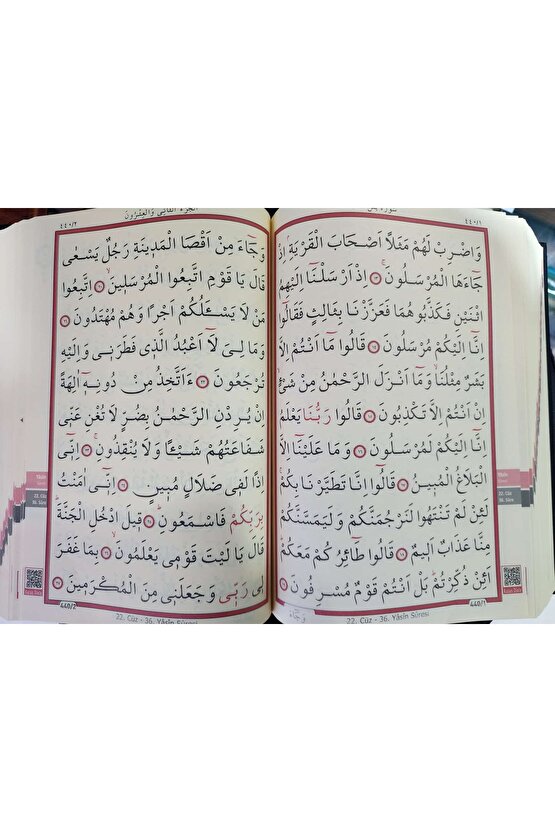 سورة يس
٤٤٠/١
وَاضْرِبْ لَهُمْ مَثَلًا اَصْحَابَ الْقَرْيَةِ اِذْ
جَٓاءَهَا الْمُرْسَلُونَۚ ﴿١٣﴾ اِذْ اَرْسَلْنَٓا اِلَيْهِمُ
اثْنَيْنِ فَكَذَّبُوهُمَا فَعَزَّزْنَا بِثَالِثٍ فَقَالُٓوا
اِنَّٓا اِلَيْكُمْ مُرْسَلُونَ ﴿١٤﴾ قَالُوا مَٓا اَنْتُمْ اِلَّا
بَشَرٌ مِثْلُنَاۙ وَمَٓا اَنْزَلَ الرَّحْمٰنُ مِنْ شَيْءٍۙ
اِنْ اَنْتُمْ اِلَّا تَكْذِبُونَ ﴿١٥﴾ قَالُوا رَبُّنَا يَعْلَمُ
اِنَّٓا اِلَيْكُمْ لَمُرْسَلُونَ ﴿١٦﴾ وَمَا عَلَيْنَٓا اِلَّا
الْبَلَاغُ الْمُبِينُ ﴿١٧﴾ قَالُٓوا اِنَّا تَطَيَّرْنَا بِكُمْۚ
لَئِنْ لَمْ تَنْتَهُوا لَنَرْجُمَنَّكُمْ وَلَيَمَسَّنَّكُمْ
مِنَّا عَذَابٌ اَلِيمٌ ﴿١٨﴾ قَالُوا طَٓائِرُكُمْ مَعَكُمْۜ
اَئِنْ ذُكِّرْتُمْۜ بَلْ اَنْتُمْ قَوْمٌ مُسْرِفُونَ ﴿١٩﴾
وَجَٓاءَ
440/1
22. Cüz - 36. Yâsîn Sûresi
Yâsîn
22. Cüz
36. Sûre
الجزء الثاني والعشرون
٤٤٠/٢
وَجَٓاءَ مِنْ اَقْصَا الْمَدِينَةِ رَجُلٌ يَسْعٰى
قَالَ يَا قَوْمِ اتَّبِعُوا الْمُرْسَلِينَۙ ﴿٢٠﴾ اِتَّبِعُوا
مَنْ لَا يَسْـَٔلُكُمْ اَجْرًا وَهُمْ مُهْتَدُونَ ﴿٢١﴾
وَمَا لِيَ لَٓا اَعْبُدُ الَّذِي فَطَرَنِي وَاِلَيْهِ
تُرْجَعُونَ ﴿٢٢﴾ ءَاَتَّخِذُ مِنْ دُونِهِٓ اٰلِهَةً
اِنْ يُرِدْنِ الرَّحْمٰنُ بِضُرٍّ لَا تُغْنِ عَنِّي
شَفَاعَتُهُمْ شَيْـًٔا وَلَا يُنْقِذُونِۚ ﴿٢٣﴾ اِنِّٓي
اِذًا لَفِي ضَلَالٍ مُبِينٍ ﴿٢٤﴾ اِنِّٓي اٰمَنْتُ
بِرَبِّكُمْ فَاسْمَعُونِۜ ﴿٢٥﴾ قِيلَ ادْخُلِ الْجَنَّةَۜ
قَالَ يَا لَيْتَ قَوْمِي يَعْلَمُونَۙ ﴿٢٦﴾ بِمَا غَفَرَ
لِي رَبِّي وَجَعَلَنِي مِنَ الْمُكْرَمِينَ ﴿٢٧﴾
440/2
22. Cüz - 36. Yâsîn Sûresi
Yâsîn
22. Cüz
36. Sûre